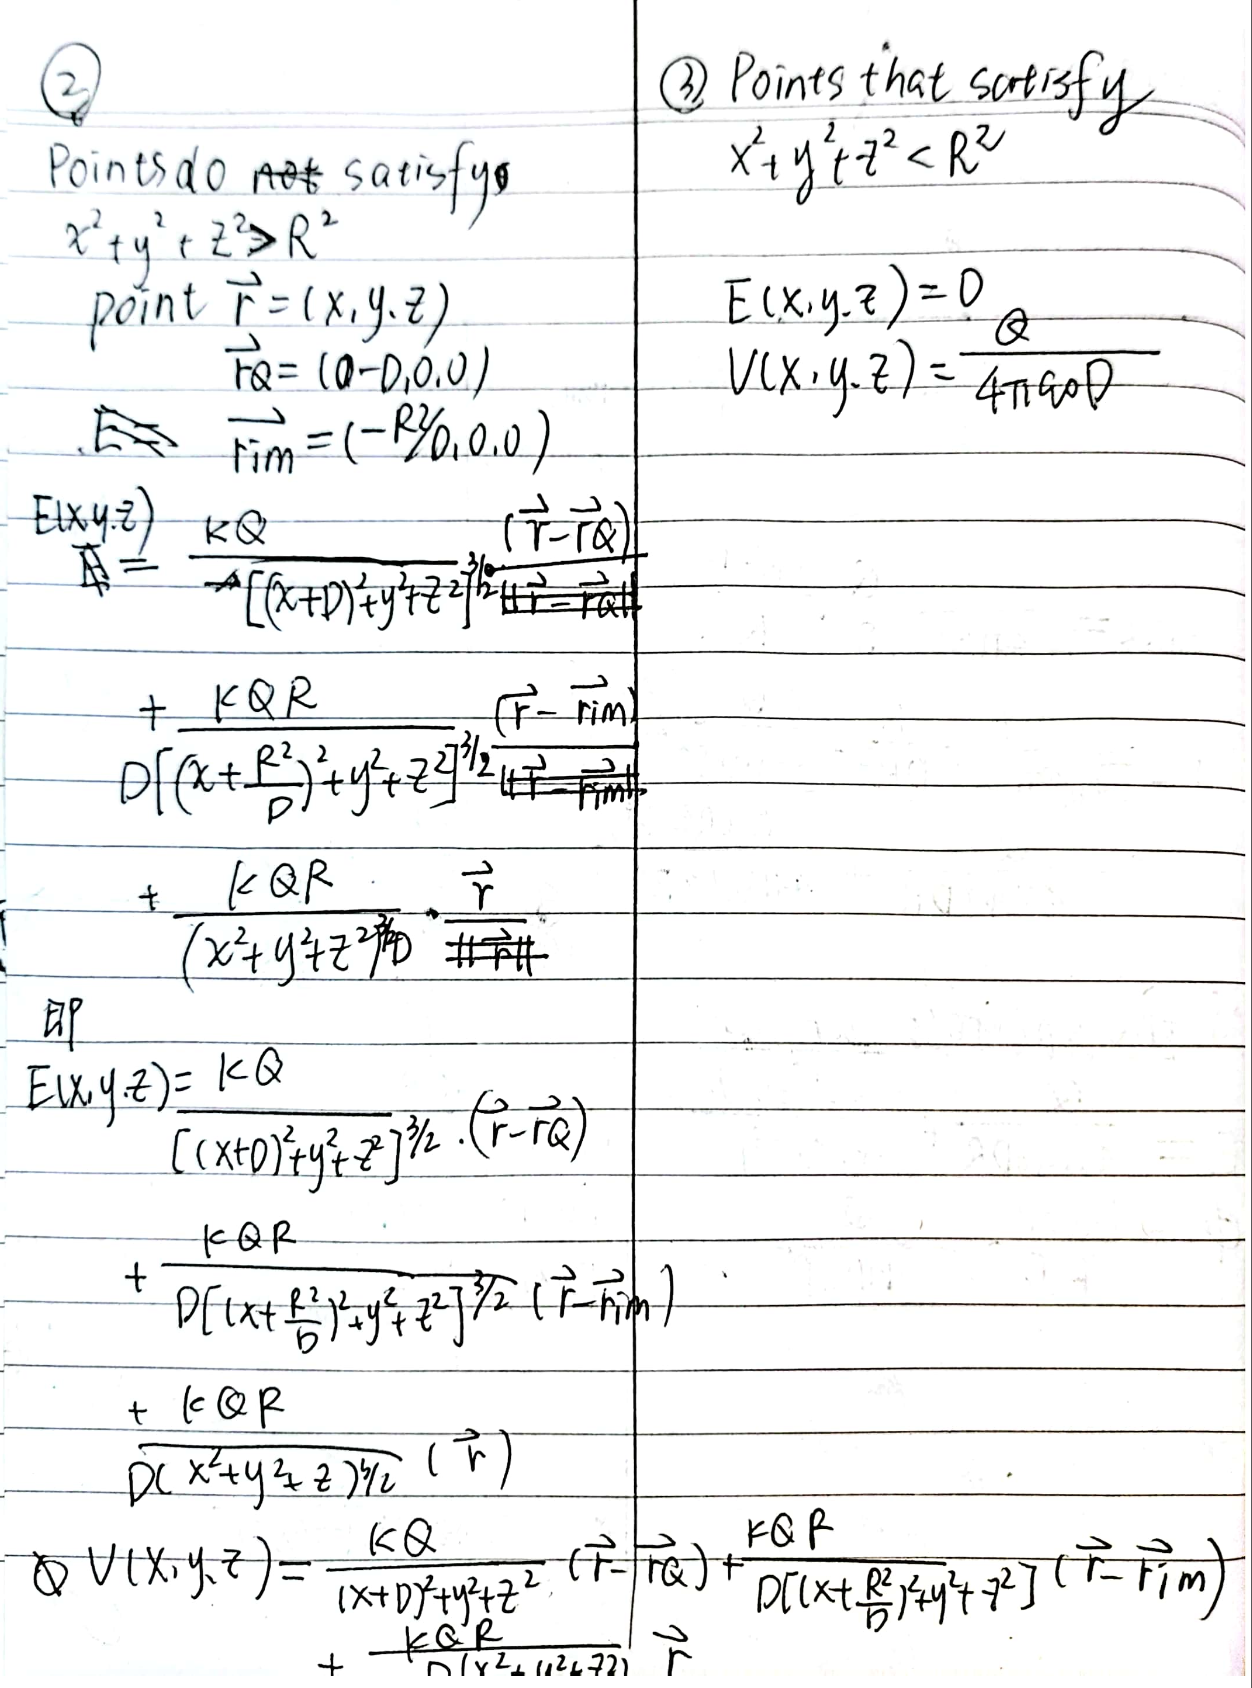 ②
Points do not satisfy
x²+y²+z²≥R²
point r⃗=(x,y,z)
r⃗Q=(0-D,0,0)
E=
r⃗im=(-R²/D,0,0)
E(x,y,z)
= KQ/[(x+D)²+y²+z²]^3/2 · (r⃗-r⃗Q)/||r⃗-r⃗Q||
+ KQR/D[(x+R²/D)²+y²+z²]^3/2 (r⃗-r⃗im)/||r⃗-r⃗im||
+ KQR/(x²+y²+z²)^3/2 D · r⃗/||r⃗||
即
E(x,y,z)= KQ/[(x+D)²+y²+z²]^3/2 · (r⃗-r⃗Q)
+ KQR/D[(x+R²/D)²+y²+z²]^3/2 (r⃗-r⃗im)
+ KQR/D(x²+y²+z)^3/2 (r⃗)
V(x,y,z)= KQ/(x+D)²+y²+z² (r⃗-r⃗Q) + KQR/D[(x+R²/D)²+y²+z²] (r⃗-r⃗im)
+ KQR/D(x²+y²+z²) r⃗
③ Points that satisfy
x²+y²+z²<R²
E(x,y,z)=0
V(x,y,z)= Q/4πε0D